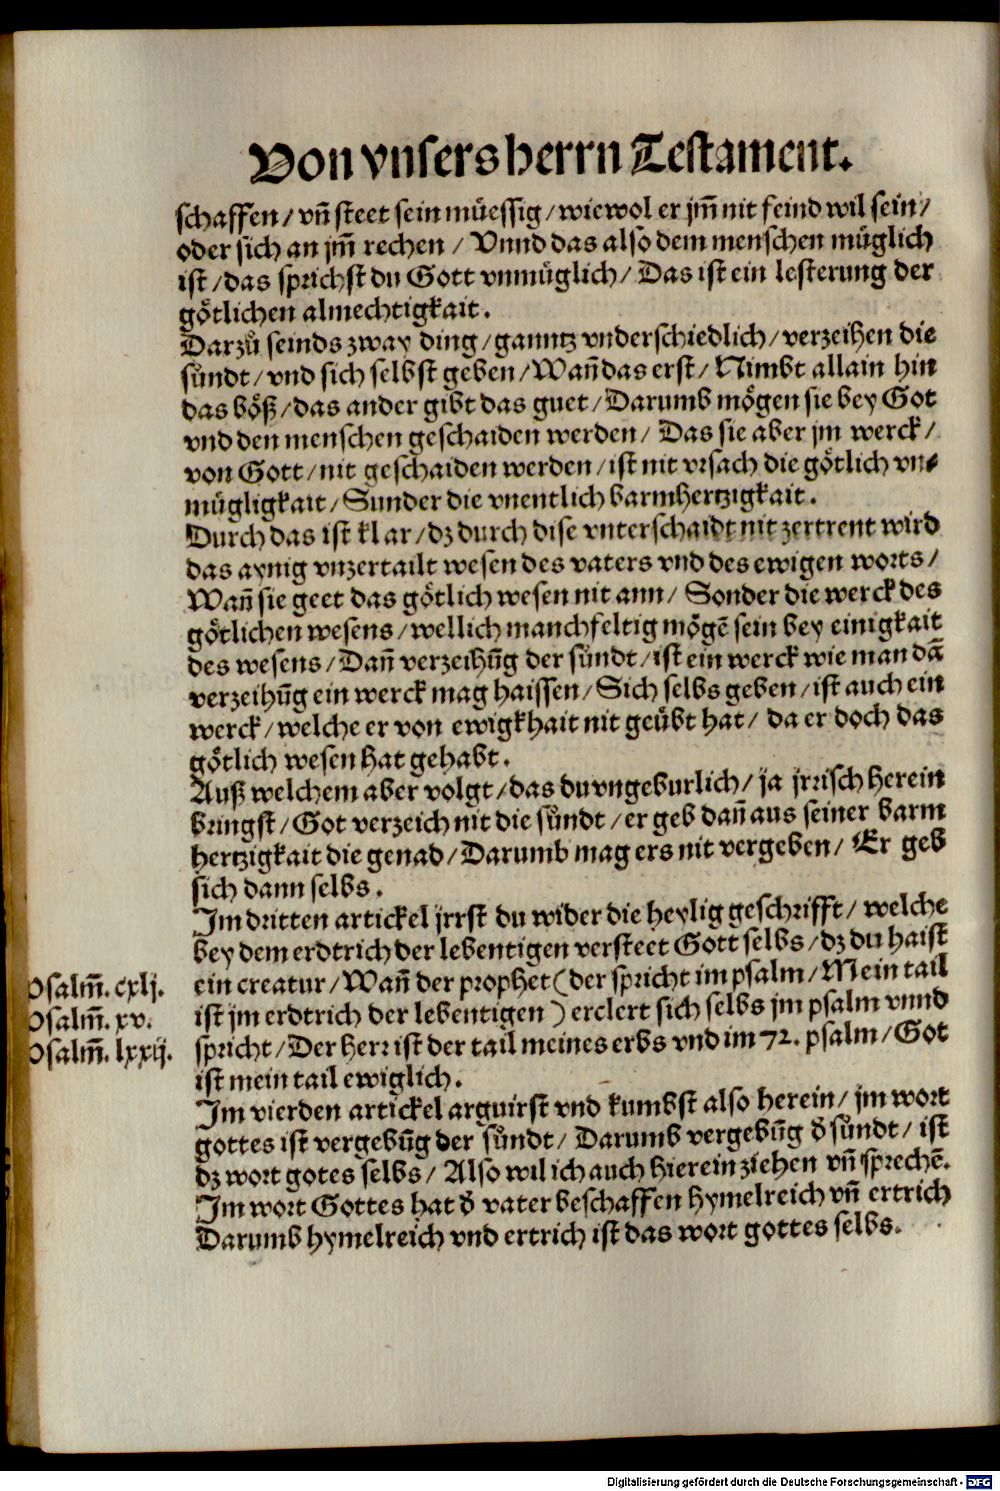 Von vnsers herrn Testament.
schaffen / vñ steet sein müessig / wiewol er jm̃ nit feind wil sein /
oder sich an jm̃ rechen / Vnnd das also dem menschen müglich
ist / das sprichst du Gott vnmüglich / Das ist ein lesterung der
götlichen almechtigkait.
Darzů seinds zway ding / ganntz vnderschiedlich / verzeihen die
sündt / vnd sich selbst geben / Wañ das erst / Nimbt allain hin
das böß / das ander gibt das guet / Darumb mögen sie bey Got
vnd den menschen geschaiden werden / Das sie aber jm werck /
von Gott / nit geschaiden werden / ist nit vrsach die götlich vn⸗
mügligkait / Sunder die vnentlich barmhertzigkait.
Durch das ist klar / dz durch dise vnterschaidt nit zertrent wird
das aynig vnzertailt wesen des vaters vnd des ewigen worts /
Wañ sie geet das götlich wesen nit ann / Sonder die werck des
götlichen wesens / wellich manchfeltig mögē sein bey einigkait
des wesens / Dañ verzeihūg der sündt / ist ein werck wie man dā
verzeihūg ein werck mag haissen / Sich selbs geben / ist auch ein
werck / welche er von ewigkhait nit geübt hat / da er doch das
götlich wesen hat gehabt.
Auß welchem aber volgt / das du vngeburlich / ja jrrisch herein
bringst / Got verzeich nit die sündt / er geb dañ aus seiner barm
hertzigkait die genad / Darumb mag ers nit vergeben / Er geb
sich dann selbs.
Im dritten artickel jrrst du wider die heylig geschrifft / welche
bey dem erdtrich der lebentigen versteet Gott selbs / dz du haist
Psalm̃. cxlj.
ein creatur / Wañ der prophet (der spricht im psalm / Mein tail
Psalm̃. xv.
ist jm erdtrich der lebentigen) erclert sich selbs jm psalm vnnd
Psalm̃. lxxij.
spricht / Der herr ist der tail meines erbs vnd im 72. psalm / Got
ist mein tail ewiglich.
Im vierden artickel arguirst vnd kumbst also herein / jm wort
gottes ist vergebūg der sündt / Darumb vergebūg ð sündt / ist
dz wort gotes selbs / Also wil ich auch hierein ziehen vñ sprechē.
Im wort Gottes hat ð vater beschaffen hymelreich vñ ertrich
Darumb hymelreich vnd ertrich ist das wort gottes selbs.
Digitalisierung gefördert durch die Deutsche Forschungsgemeinschaft - DFG